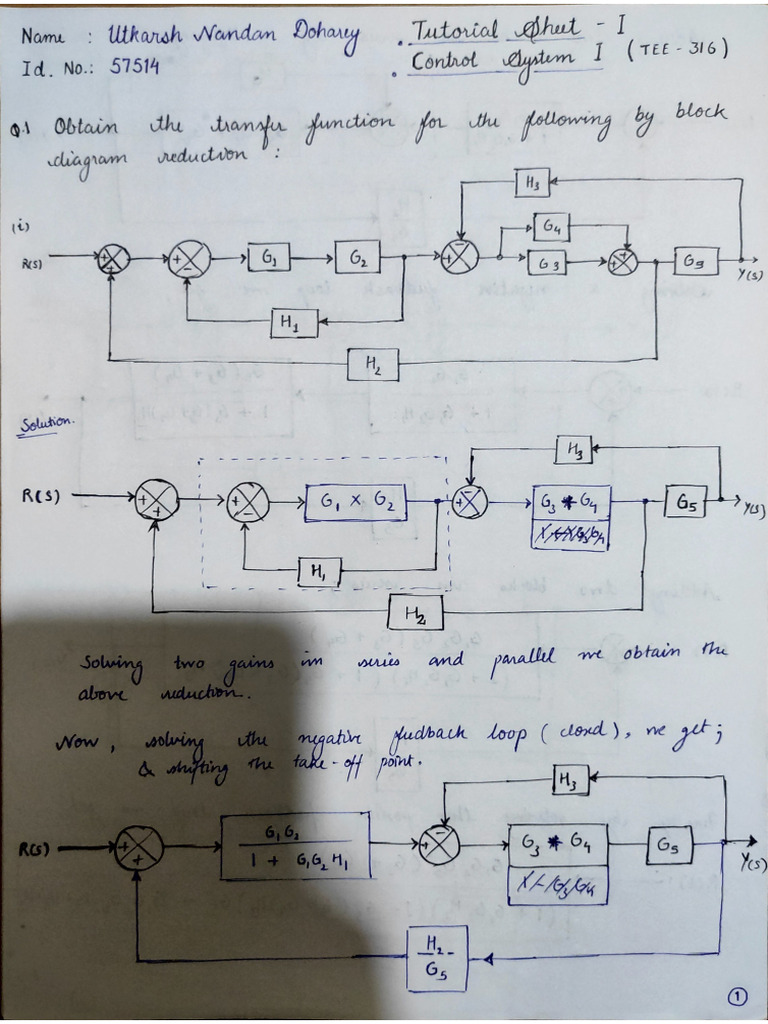 Name : Utkarsh Nandan Doharey
Id. No.: 57514
. Tutorial Sheet - I
. Control System I (TEE - 316)
Q.1 Obtain the transfer function for the following by block
diagram reduction :
(i)
H3
G4
R(S) + + + - G1 G2 + - G3 + + G5 Y(S)
H1
H2
Solution.
H3
R(S) + + + - G1 x G2 + - G3 * G4 G5 Y(S)
H1
H2
Solving two gains in series and parallel we obtain the
above reduction.
Now, solving the negative feedback loop (closed), we get;
& shifting the take-off point.
H3
R(S) + + G1G2 + - G3 * G4 G5 Y(S)
1 + G1G2H1
H2
G5
1